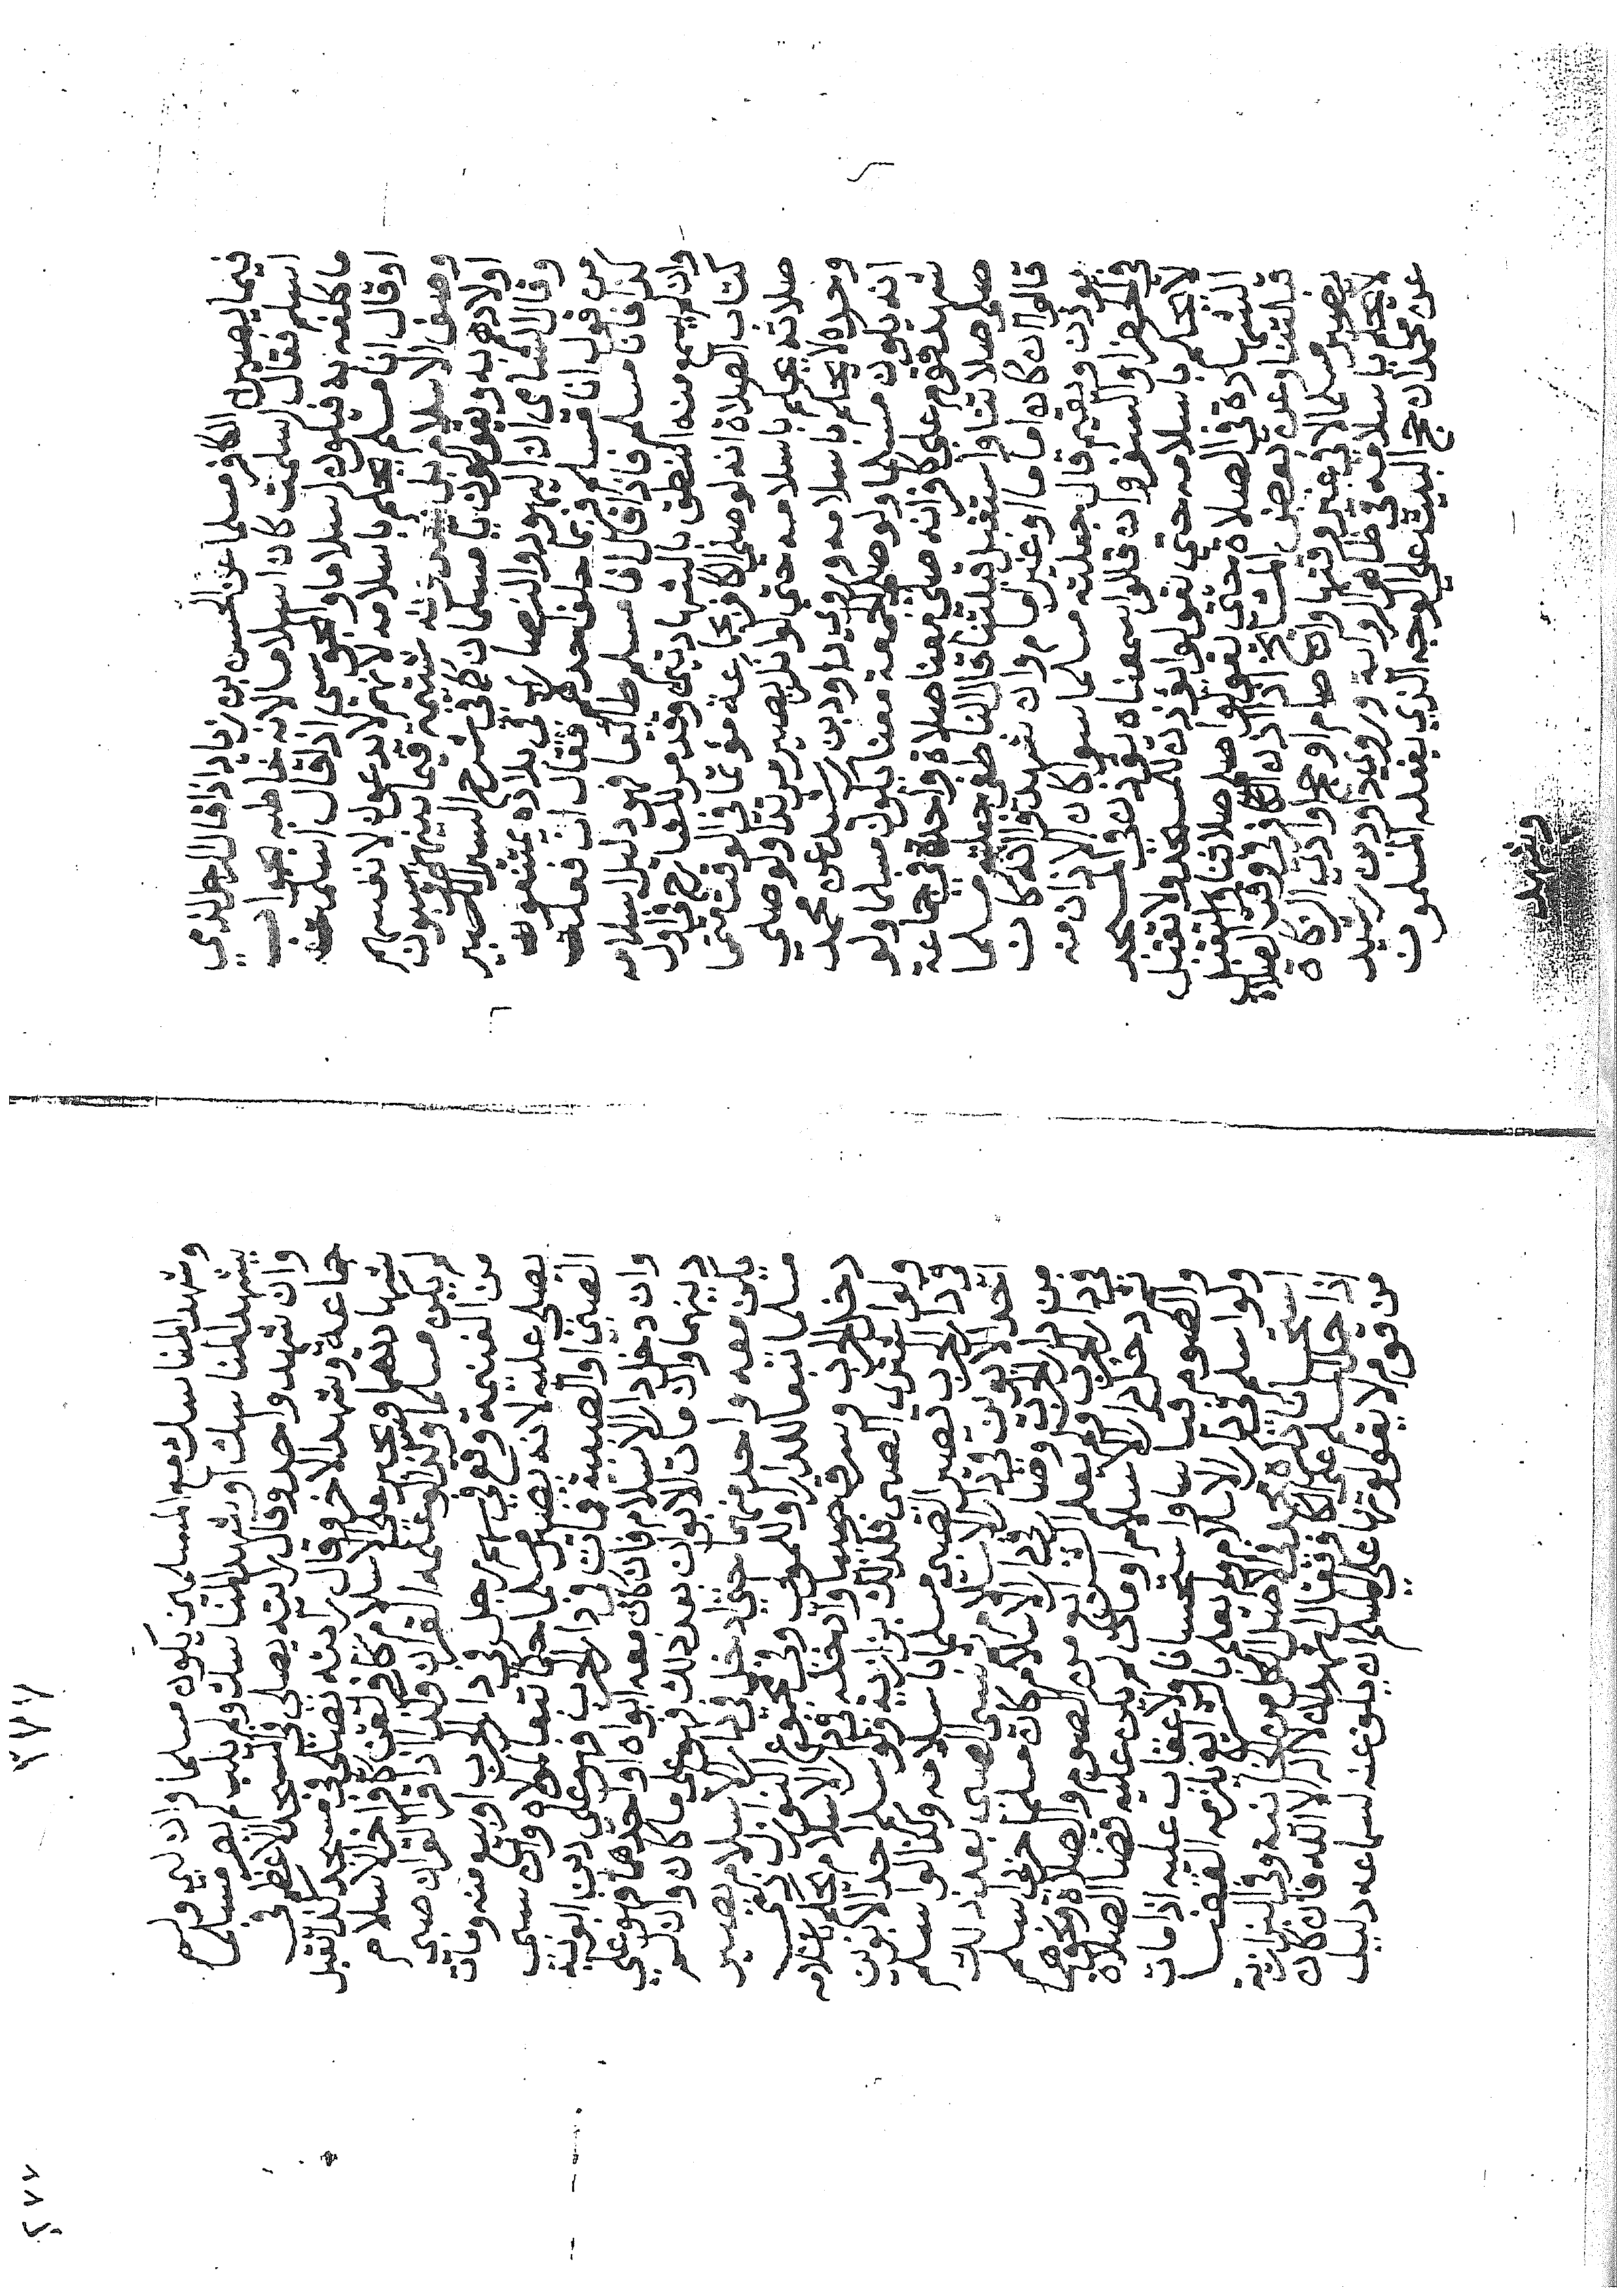 فيما يصير به الكافر مسلما عن الحسن بن زياد اذا قال الرجل الذمي
اسلم فقال اسلمت كان اسلاما لانه خاطبه بجواب
ما كلفه به فيكون اسلاما والمجوسي اذا قال اسلمت
او قال انا مسلم يحكم باسلامه لانهم لا يدعون لانفسهم
وصف الاسلام بل شتيمة فيما بينهم يسبون
اولادهم به ويقولون يا مسلمان كذا في شرح السير الكبير
وقال الشامي ان اليهود والنصارى في بلاده يمتنعون
من قول انا مسلم وربما حلف احدهم فقال ان فعلت
كذا فانا مسلم فاذا قال انا مسلم طائعا فهو دليل اسلامه
وان لم يسمع منه النطق بالشهادتين وقد مر للشارح في اول
كتاب الصلاة انه لو صلى الكافر بجماعة مؤتما في الوقت متمما
صلاته يحكم باسلامه حتى لو انكر يصير مرتدا ولو صلي
وحده لا يحكم باسلامه وروي داود بن رشيد عن محمد
انه يكون مسلما ولو صلى الجمعة معنا يكون مسلما ولو
شهد قوم على كافر انه صلى معنا صلاة واحدة في جماعة
صلى صلاتنا واستقبل قبلتنا قال الناطفي جعلته مسلما
قالوا ان كان اماما او غير امام وان شهدوا انه كان
يوذن ويقيم قال جعلته مسلما سوا كان الاذان منه
في الحضر او السفر وان قالوا سمعناه يوذن في المسجد
لا يحكم باسلامه حتي يقولوا يوذن للمسجد ولا تقبل
الشهادة في الصلاة حتي يقولوا صلى صلاتنا واستقبل
قبلتنا وعن بعض المشائخ اذا اذن الكافر في وقت الصلاة
يصير مسلما لا في غير وقتها وان صام او حج او ادي الزكاة
لا يحكم باسلامه في ظاهر الرواية وروي داود بن رشيد
عن محمد ان حج البيت علي الوجه الذي يفعله المسلمون
وشهد
وشهد المناسك مع المسلمين يكون مسلما وان لبي ولم
يشهد المناسك او شهد المناسك ولم يلب لم يصر مسلما
وان شهد واحد وقال رايته يصلي في المسجد الاعظم في
جماعة وشهد الاخر وقال رايته يصلي في مسجد كذا تقبل
شهادتهما ويجبر على الاسلام كافر لقن كافرا الاسلام
لم يكن مسلما وكذا لو علمه القران وكذا اذا قرا القران صبي
من الغنيمة وقع في سهم رجل في دار الحرب او بيع منه ومات
يصلى عليه لانه يصير مسلما حكما تبعا لمولاه وان سبي
الصبي او الصبية فمات في دار الحرب فهو علي دين ابويه
وان دخل دار الاسلام فان كان معه ابواه او احدهما فهو علي
دينهما وان مات الابوان بعد ذلك فهو على ما كان وان لم
يكن معه واحد منهما حتى دخل في دار الاسلام يصير
مسلما تبعا للدار او للمولى وفي مجموع النوازل ذمي
دخل الحرب وسرق صبيا وادخله في دار الاسلام يحكم باسلامه
ولو اشترى الصبي فكذلك بزازية ولو اسلم احد الابوين
في دار الحرب يصير الصبي مسلما باسلامه وكذا لو اسلم
احد الابوين في دار الاسلام ثم سبى الصبي بعد ذلك
من دار الحرب وصار في دار الاسلام كان مسلما حربي اسلم
في دار الحرب ولم يعلم الشرائع من الصوم والصلاة ونحوهما
ثم دخل دار الاسلام او مات لم يكن عليه قضا الصلاة
والصوم قياسا واستحسانا ولا عقاب عليه اذا مات
ولو اسلم في دار الاسلام ولم يعلم بالشرائع يلزمه القضا
استحسانا تتارخانية وفي البزازية
اذا حمل المسلم على الكافر فقال اشهد ان لا اله الا الله فان كان
من قوم لا يقولونها على المسلم ان يكف عنه لسماعه دليل
٢٧٧